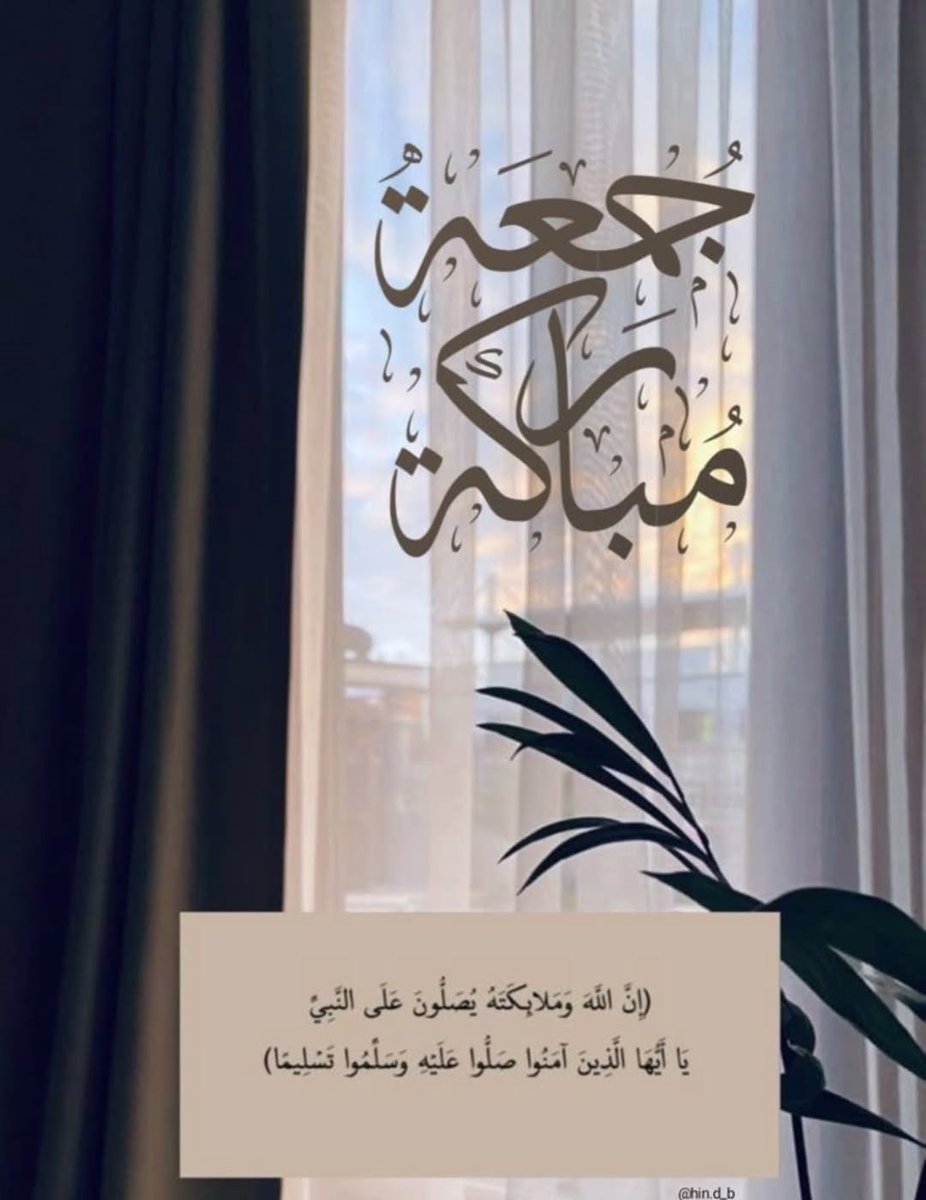 جُمعَةُ
مُبارَكة
(إِنَّ اللَّهَ وَمَلابِكَتَهُ يُصَلُّونَ عَلَى النَّبِيِّ
يَا أَيُّهَا الَّذِينَ آمَنُوا صَلُّوا عَلَيْهِ وَسَلِّمُوا تَسْلِيمًا)
@hin.d_b